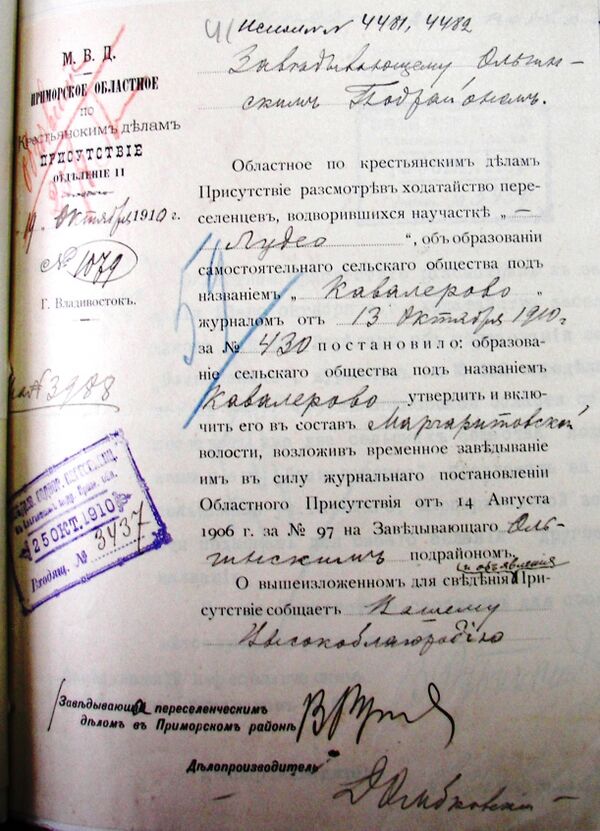 Исполн. №№ 4481, 4482
Завѣдывающему Ольгин-
скимъ Подрайономъ.
М. В. Д.
ПРИМОРСКОЕ ОБЛАСТНОЕ
ПО
Крестьянскимъ Дѣламъ
ПРИСУТСТВІЕ
ОТДѢЛЕНІЕ II
19 Октября 1910 г.
№ 1079
Г. Владивостокъ.
№ 3988
25 ОКТ. 1910
Входящ. № 3437
54
Областное по крестьянскимъ дѣламъ
Присутствіе разсмотрѣвъ ходатайство пере-
селенцевъ, водворившихся научасткѣ „ —
Лудео “, объ образованіи
самостоятельнаго сельскаго общества подъ
названіемъ „ Кавалерово „
журналомъ отъ 13 Октября 1910 г
за № 430 постановило: образова-
ніе сельскаго общества подъ названіемъ
Кавалерово утвердить и вклю-
чить его въ составъ Маргаритовской
волости, возложив временное завѣдываніе
имъ въ силу журнальнаго постановленіи
Областного Присутствія отъ 14 Августа
1906 г. за № 97 на Завѣдывающаго Оль-
гинскимъ подрайономъ.
и объявленія
О вышеизложенномъ для свѣдѣнія При-
сутствіе собщаетъ Вашему
Высокоблагородію
Завѣдывающій переселенческимъ
дѣломъ въ Приморскомъ районѣ
Дѣлопроизводитель